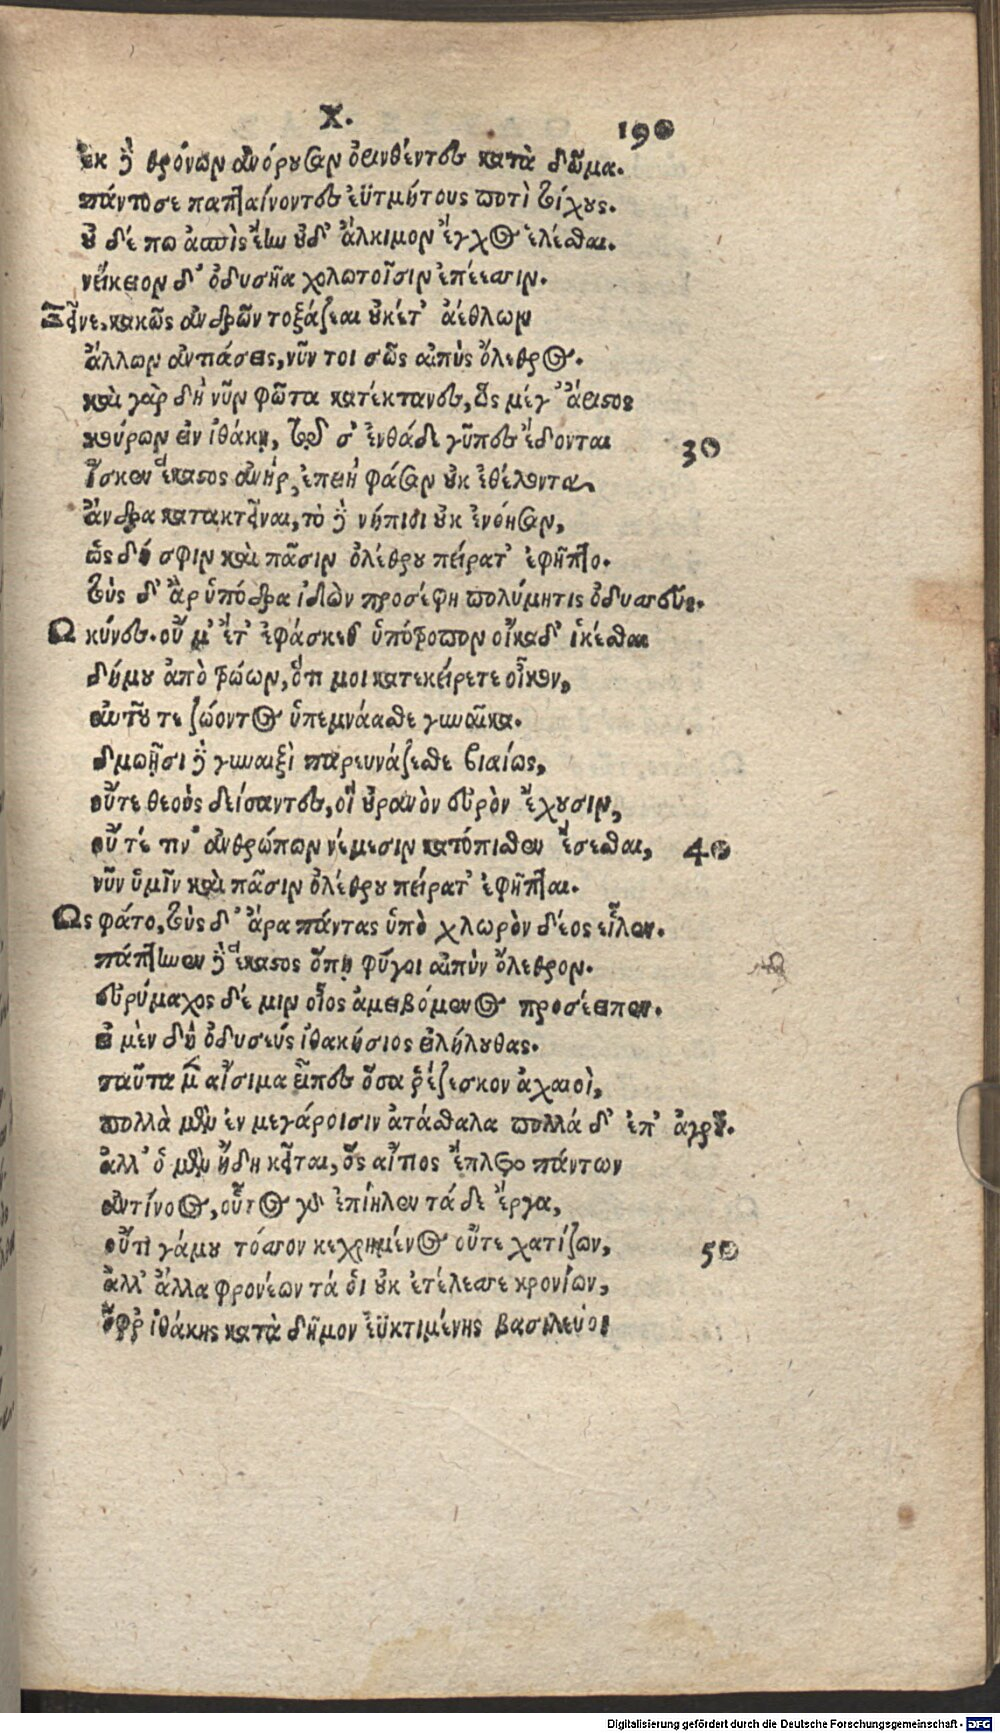 Χ. 190
ἐκ δὲ θρόνων ἀνόρουσαν ὀρινθέντες κατὰ δῶμα.
πάντοσε παπταίνοντες ἐϋτμήτους ποτὶ τείχους.
οὐ δέ πω ἀσπὶς ἔην οὐδ' ἄλκιμον ἔγχος ἑλέσθαι.
νείκειον δ' ὀδυσῆα χολωτοῖσιν ἐπέεσσιν.
Ξεῖνε, κακῶς ἀνδρῶν τοξάζεαι οὐκέτ' ἀέθλων
ἄλλων ἀντιάσεις, νῦν τοι σῶς αἰπὺς ὄλεθρος.
καὶ γὰρ δὴ νῦν φῶτα κατέκτανες, ὃς μέγ' ἄριστος
κούρων ἐν ἰθάκῃ, τῷ σ' ἐνθάδε γῦπες ἔδονται 30
ἴσκεν ἕκαστος ἀνήρ, ἐπειὴ φάσαν οὐκ ἐθέλοντα
ἄνδρα κατακτεῖναι, τὸ δὲ νήπιοι οὐκ ἐνόησαν,
ὡς δή σφιν καὶ πᾶσιν ὀλέθρου πείρατ' ἐφῆπτο.
τοὺς δ' ἂρ ὑπόδρα ἰδὼν προσέφη πολύμητις ὀδυσσεύς.
Ω κύνες. οὔ μ' ἔτ' ἐφάσκεθ' ὑπότροπον οἴκαδ' ἱκέσθαι
δήμου ἀπὸ τρώων, ὅτι μοι κατεκείρετε οἶκον,
αὐτοῦ τε ζώοντος ὑπεμνάασθε γυναῖκα.
δμωῇσι δὲ γυναιξὶ παρευνάζεσθε βιαίως,
οὔτε θεοὺς δείσαντες, οἳ οὐρανὸν εὐρὺν ἔχουσιν,
οὔ τέ τιν' ἀνθρώπων νέμεσιν κατόπισθεν ἔσεσθαι, 40
νῦν ὑμῖν καὶ πᾶσιν ὀλέθρου πείρατ' ἐφῆπται.
Ως φάτο, τοὺς δ' ἄρα πάντας ὑπὸ χλωρὸν δέος εἷλεν.
πάπτηνεν δὲ ἕκαστος ὅπῃ φύγοι αἰπὺν ὄλεθρον.
εὐρύμαχος δέ μιν οἶος ἀμειβόμενος προσέειπεν.
εἰ μὲν δὴ ὀδυσεύς ἰθακήσιος εἰλήλουθας.
ταῦτα μὲν αἴσιμα εἶπες ὅσα ῥέζεσκον ἀχαιοὶ,
πολλὰ μὲν ἐν μεγάροισιν ἀτάσθαλα πολλά δ' ἐπ' ἀγροῦ.
ἀλλ' ὁ μὲν ἤδη κεῖται, ὃς αἴτιος ἔπλετο πάντων
ἀντίνοος, οὗτος γὰρ ἐπίηλεν τά δε ἔργα,
οὔτι γάμου τόσσον κεχρημένος οὔτε χατίζων, 50
ἀλλ' ἄλλα φρονέων τά οἱ οὐκ ἐτέλεσσε κρονίων,
ὄφρ' ἰθάκης κατὰ δῆμον ἐϋκτιμένης βασιλεύοι
Digitalisierung gefördert durch die Deutsche Forschungsgemeinschaft - DFG